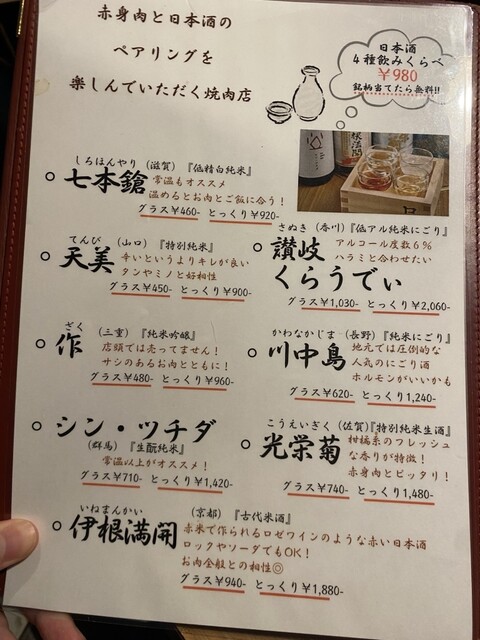 赤身肉と日本酒の
ペアリングを
楽しんでいただく焼肉店
日本酒
4種飲みくらべ
¥980
銘柄当てたら無料!!
しちほんやり (滋賀)『低精白純米』
七本鎗
常温もオススメ
温めるとお肉とご飯に合う!
グラス¥460- とっくり¥920-
てんび (山口)『特別純米』
天美
辛いというよりキレが良い
タンやミノと好相性
グラス¥450- とっくり¥900-
ざく (三重)『純米吟醸』
作
店頭では売ってません!
サシのあるお肉とともに!
グラス¥480- とっくり¥960-
シン・ツチダ
(群馬)『生酛純米』
常温以上がオススメ!
グラス¥710- とっくり¥1,420-
さぬき (香川)『低アル純米にごり』
讃岐
くらうでぃ
アルコール度数6%
ハラミと合わせたい
グラス¥1,030- とっくり¥2,060-
かわなかじま (長野)『純米にごり』
川中島
地元では圧倒的な
人気のにごり酒
ホルモンがいいかも
グラス¥620- とっくり1,240-
こうえいぎく (佐賀)『特別純米生酒』
光栄菊
柑橘系のフレッシュ
な香りが特徴!
赤身肉とピッタリ!
グラス¥740- とっくり1,480-
いねまんかい (京都)『古代米酒』
伊根満開
赤米で作られるロゼワインのような赤い日本酒
ロックやソーダでもOK!
お肉全般との相性◎
グラス¥940- とっくり¥1,880-